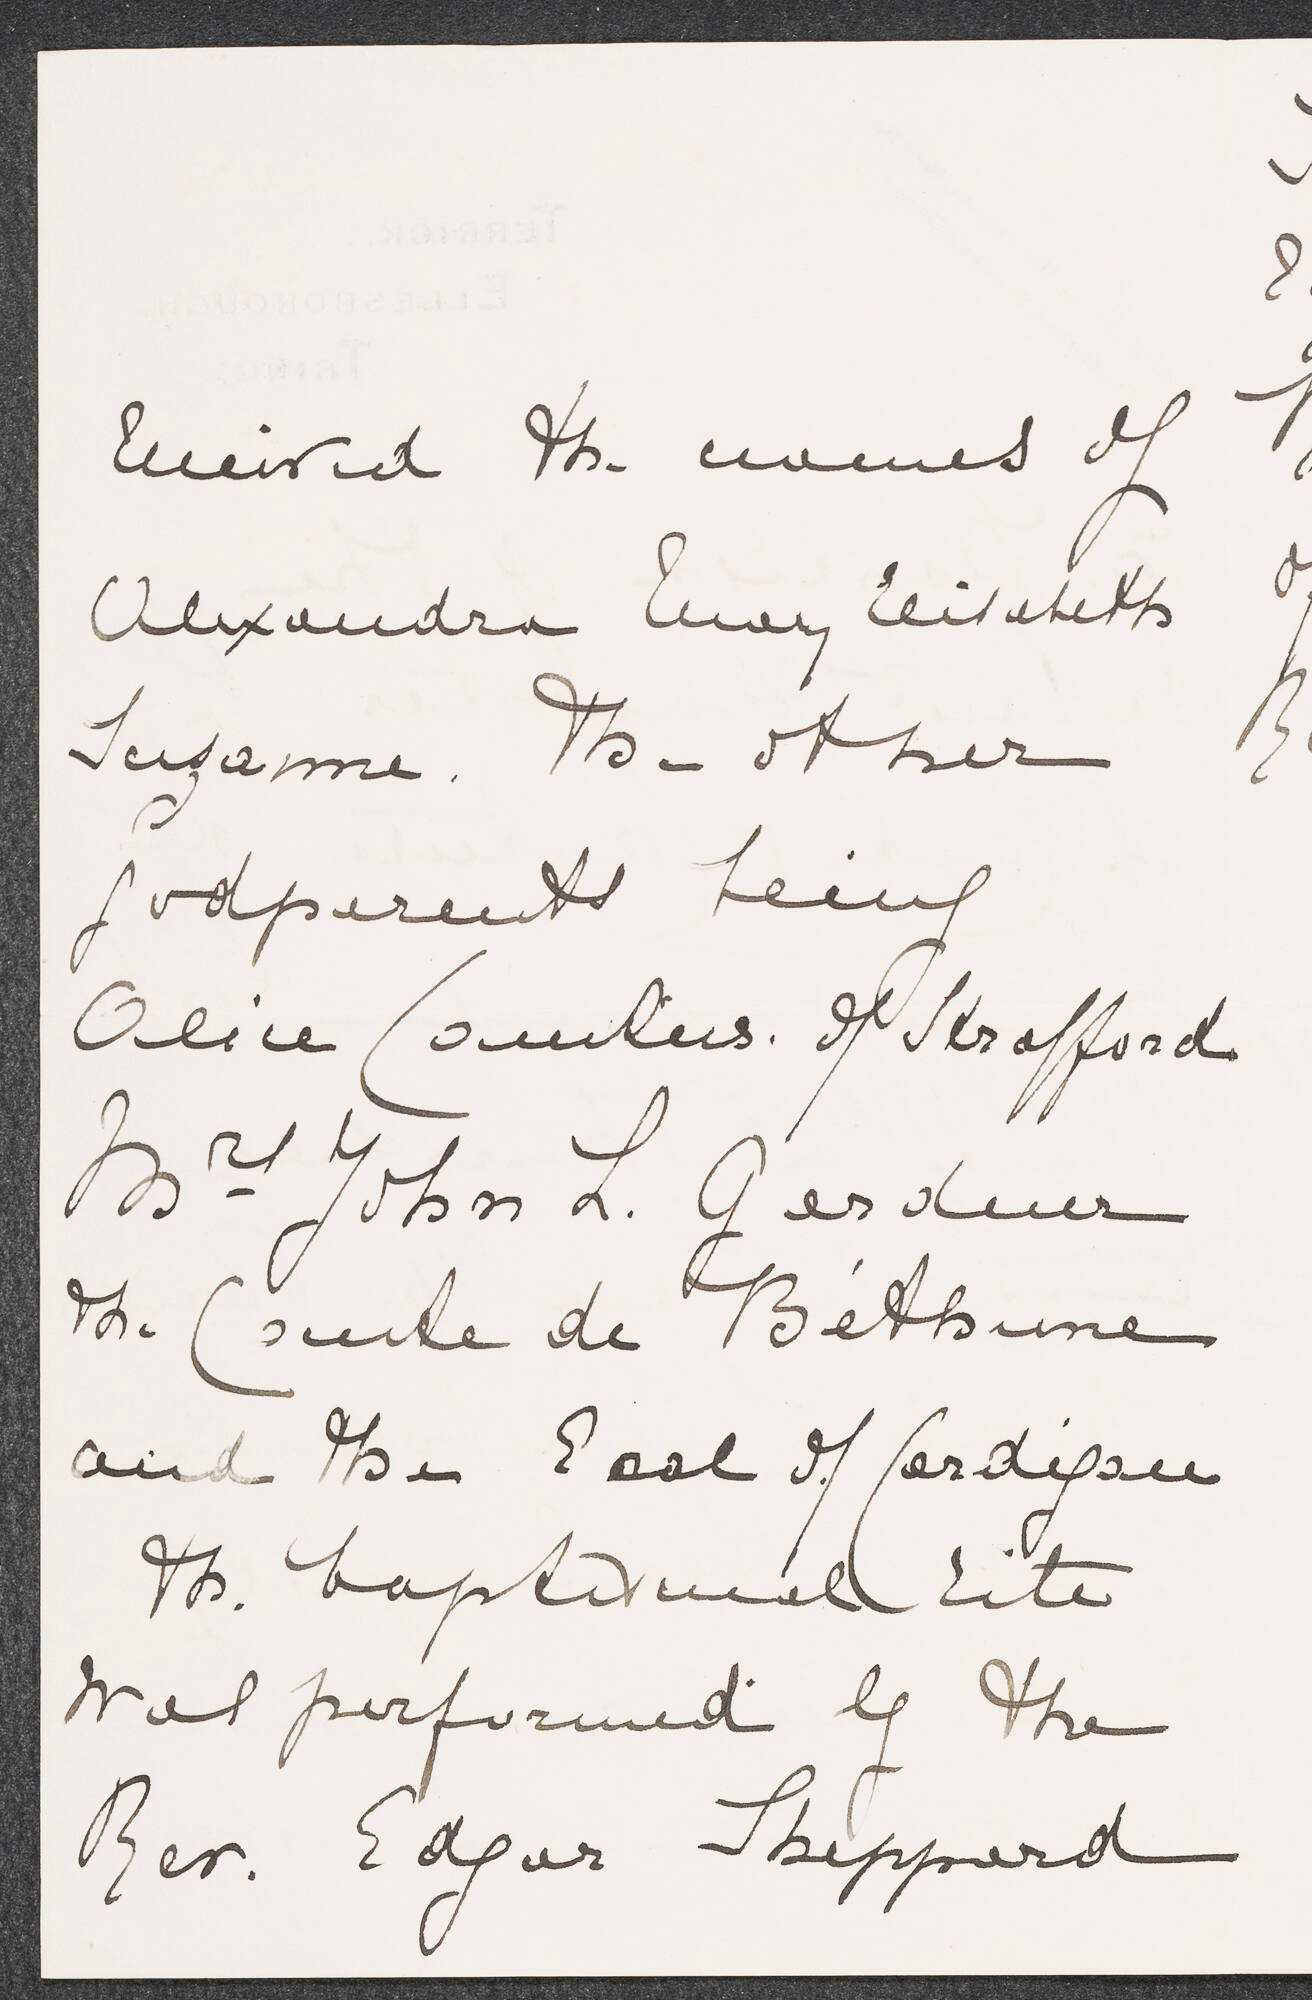 TERRICK.
ELLESBOROUGH.
TRING.
received the names of
Alexandra Mary Elisabeth
Suzanne. The other
godparents being
Alice Countess. of Strafford
Mrs John L. Gardner
the Comte de Béthune
and the Earl of Cardigan
the baptismal rite
was performed by the
Rev. Edgar Sheppard